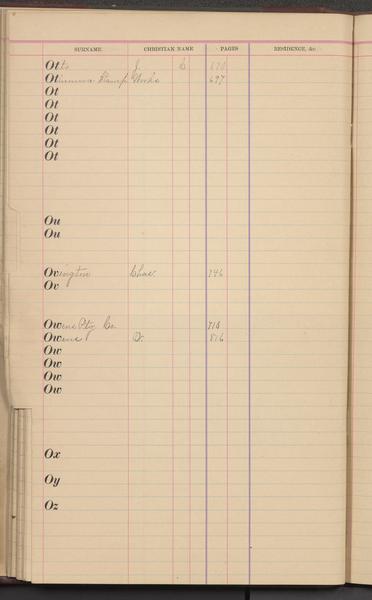 SURNAME CHRISTIAN NAME PAGES RESIDENCE, &c.
Otto J. C 670
Ottumwa Stamp Works 697
Ot
Ot
Ot
Ot
Ot
Ot
Ou
Ou
Ovington Chas. 746
Ov
Owens Ptg Co. 710
Owens D. 816
Ow
Ow
Ow
Ow
Ox
Oy
Oz